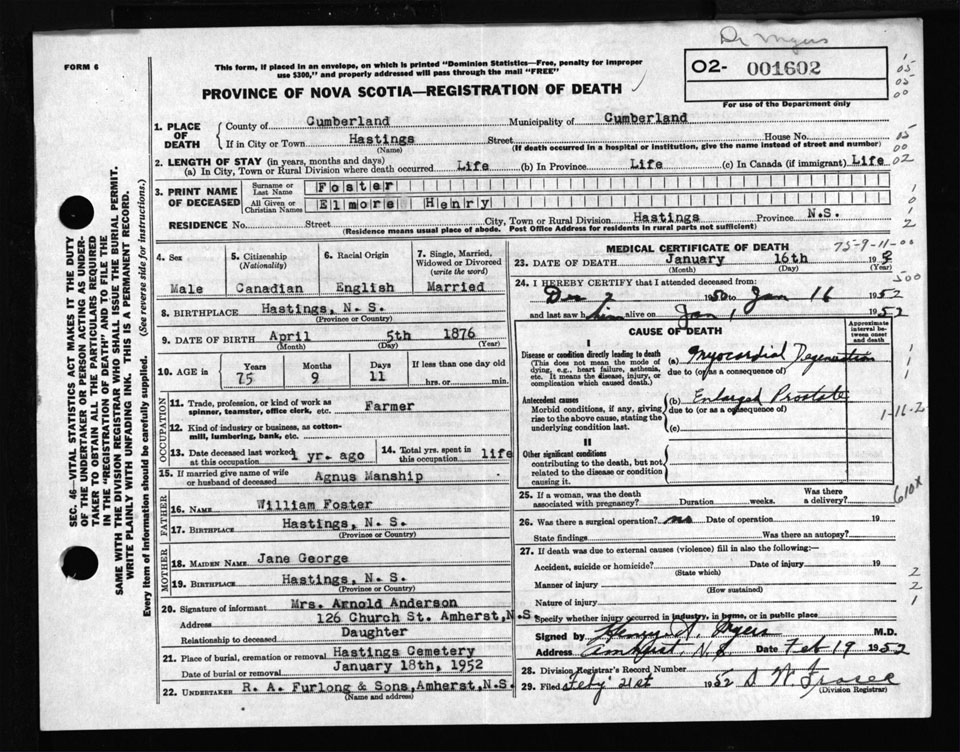 Dr Myers
FORM 6
This form, if placed in an envelope, on which is printed "Dominion Statistics—Free, penalty for improper
use $300," and properly addressed will pass through the mail "FREE"
O2- 001602
For use of the Department only
PROVINCE OF NOVA SCOTIA—REGISTRATION OF DEATH
1. PLACE OF DEATH
County of Cumberland Municipality of Cumberland
If in City or Town Hastings Street House No.
(Name) (If death occurred in a hospital or institution, give the name instead of street and number)
2. LENGTH OF STAY (in years, months and days)
(a) In City, Town or Rural Division where death occurred Life (b) In Province Life (c) In Canada (if immigrant) Life
3. PRINT NAME OF DECEASED
Surname or Last Name Foster
All Given or Christian Names Elmore Henry
RESIDENCE No. Street City, Town or Rural Division Hastings Province N.S.
(Residence means usual place of abode. Post Office Address for residents in rural parts not sufficient)
SEC. 46—VITAL STATISTICS ACT MAKES IT THE DUTY
OF THE UNDERTAKER OR PERSON ACTING AS UNDER-
TAKER TO OBTAIN ALL THE PARTICULARS REQUIRED
IN THE "REGISTRATION OF DEATH" AND TO FILE THE
SAME WITH THE DIVISION REGISTRAR WHO SHALL ISSUE THE BURIAL PERMIT.
WRITE PLAINLY WITH UNFADING INK. THIS IS A PERMANENT RECORD.
Every item of information should be carefully supplied. (See reverse side for instructions.)
4. Sex
Male
5. Citizenship
(Nationality)
Canadian
6. Racial Origin
English
7. Single, Married,
Widowed or Divorced
(write the word)
Married
8. BIRTHPLACE Hastings, N. S.
(Province or Country)
9. DATE OF BIRTH April 5th 1876
(Month) (Day) (Year)
10. AGE in Years Months Days If less than one day old
75 9 11 hrs. or min.
OCCUPATION
11. Trade, profession, or kind of work as
spinner, teamster, office clerk, etc. Farmer
12. Kind of industry or business, as cotton-
mill, lumbering, bank, etc.
13. Date deceased last worked
at this occupation 1 yr. ago
14. Total yrs. spent in
this occupation life
15. If married give name of wife
or husband of deceased Agnus Manship
FATHER
16. NAME William Foster
17. BIRTHPLACE Hastings, N. S.
(Province or Country)
MOTHER
18. MAIDEN NAME Jane George
19. BIRTHPLACE Hastings, N. S.
(Province or Country)
20. Signature of informant Mrs. Arnold Anderson
Address 126 Church St. Amherst, N.S
Relationship to deceased Daughter
21. Place of burial, cremation or removal Hastings Cemetery
Date of burial or removal January 18th, 1952
22. UNDERTAKER R. A. Furlong & Sons, Amherst, N.S.
(Name and address)
MEDICAL CERTIFICATE OF DEATH
75-9-11-00
23. DATE OF DEATH January 16th 195
(Month) (Day) (Year)
500
24. I HEREBY CERTIFY that I attended deceased from:
Dec 2 1950 to Jan 16 1952
and last saw him alive on Jan 1 1952
CAUSE OF DEATH
Approximate
interval be-
tween onset
and death
I
Disease or condition directly leading to death
(This does not mean the mode of
dying, e.g., heart failure, asthenia,
etc. It means the disease, injury, or
complication which caused death.)
(a) Myocardial Degeneration
due to (or as a consequence of)
Antecedent causes
Morbid conditions, if any, giving
rise to the above cause, stating the
underlying condition last.
(b) Enlarged Prostate
due to (or as a consequence of)
(c)
1-16-2
II
Other significant conditions
contributing to the death, but not
related to the disease or condition
causing it.
610x
25. If a woman, was the death
associated with pregnancy? Duration weeks. Was there
a delivery?
26. Was there a surgical operation? no Date of operation 19
State findings Was there an autopsy?
27. If death was due to external causes (violence) fill in also the following:—
Accident, suicide or homicide? Date of injury 19
(State which)
Manner of injury
(How sustained)
Nature of injury
Specify whether injury occurred in industry, in home, or in public place
Signed by Henry A. Myers M.D.
Address Amherst, N.S. Date Feb 19 1952
28. Division Registrar's Record Number
29. Filed Feby 21st 1952 D W Fraser
(Division Registrar)